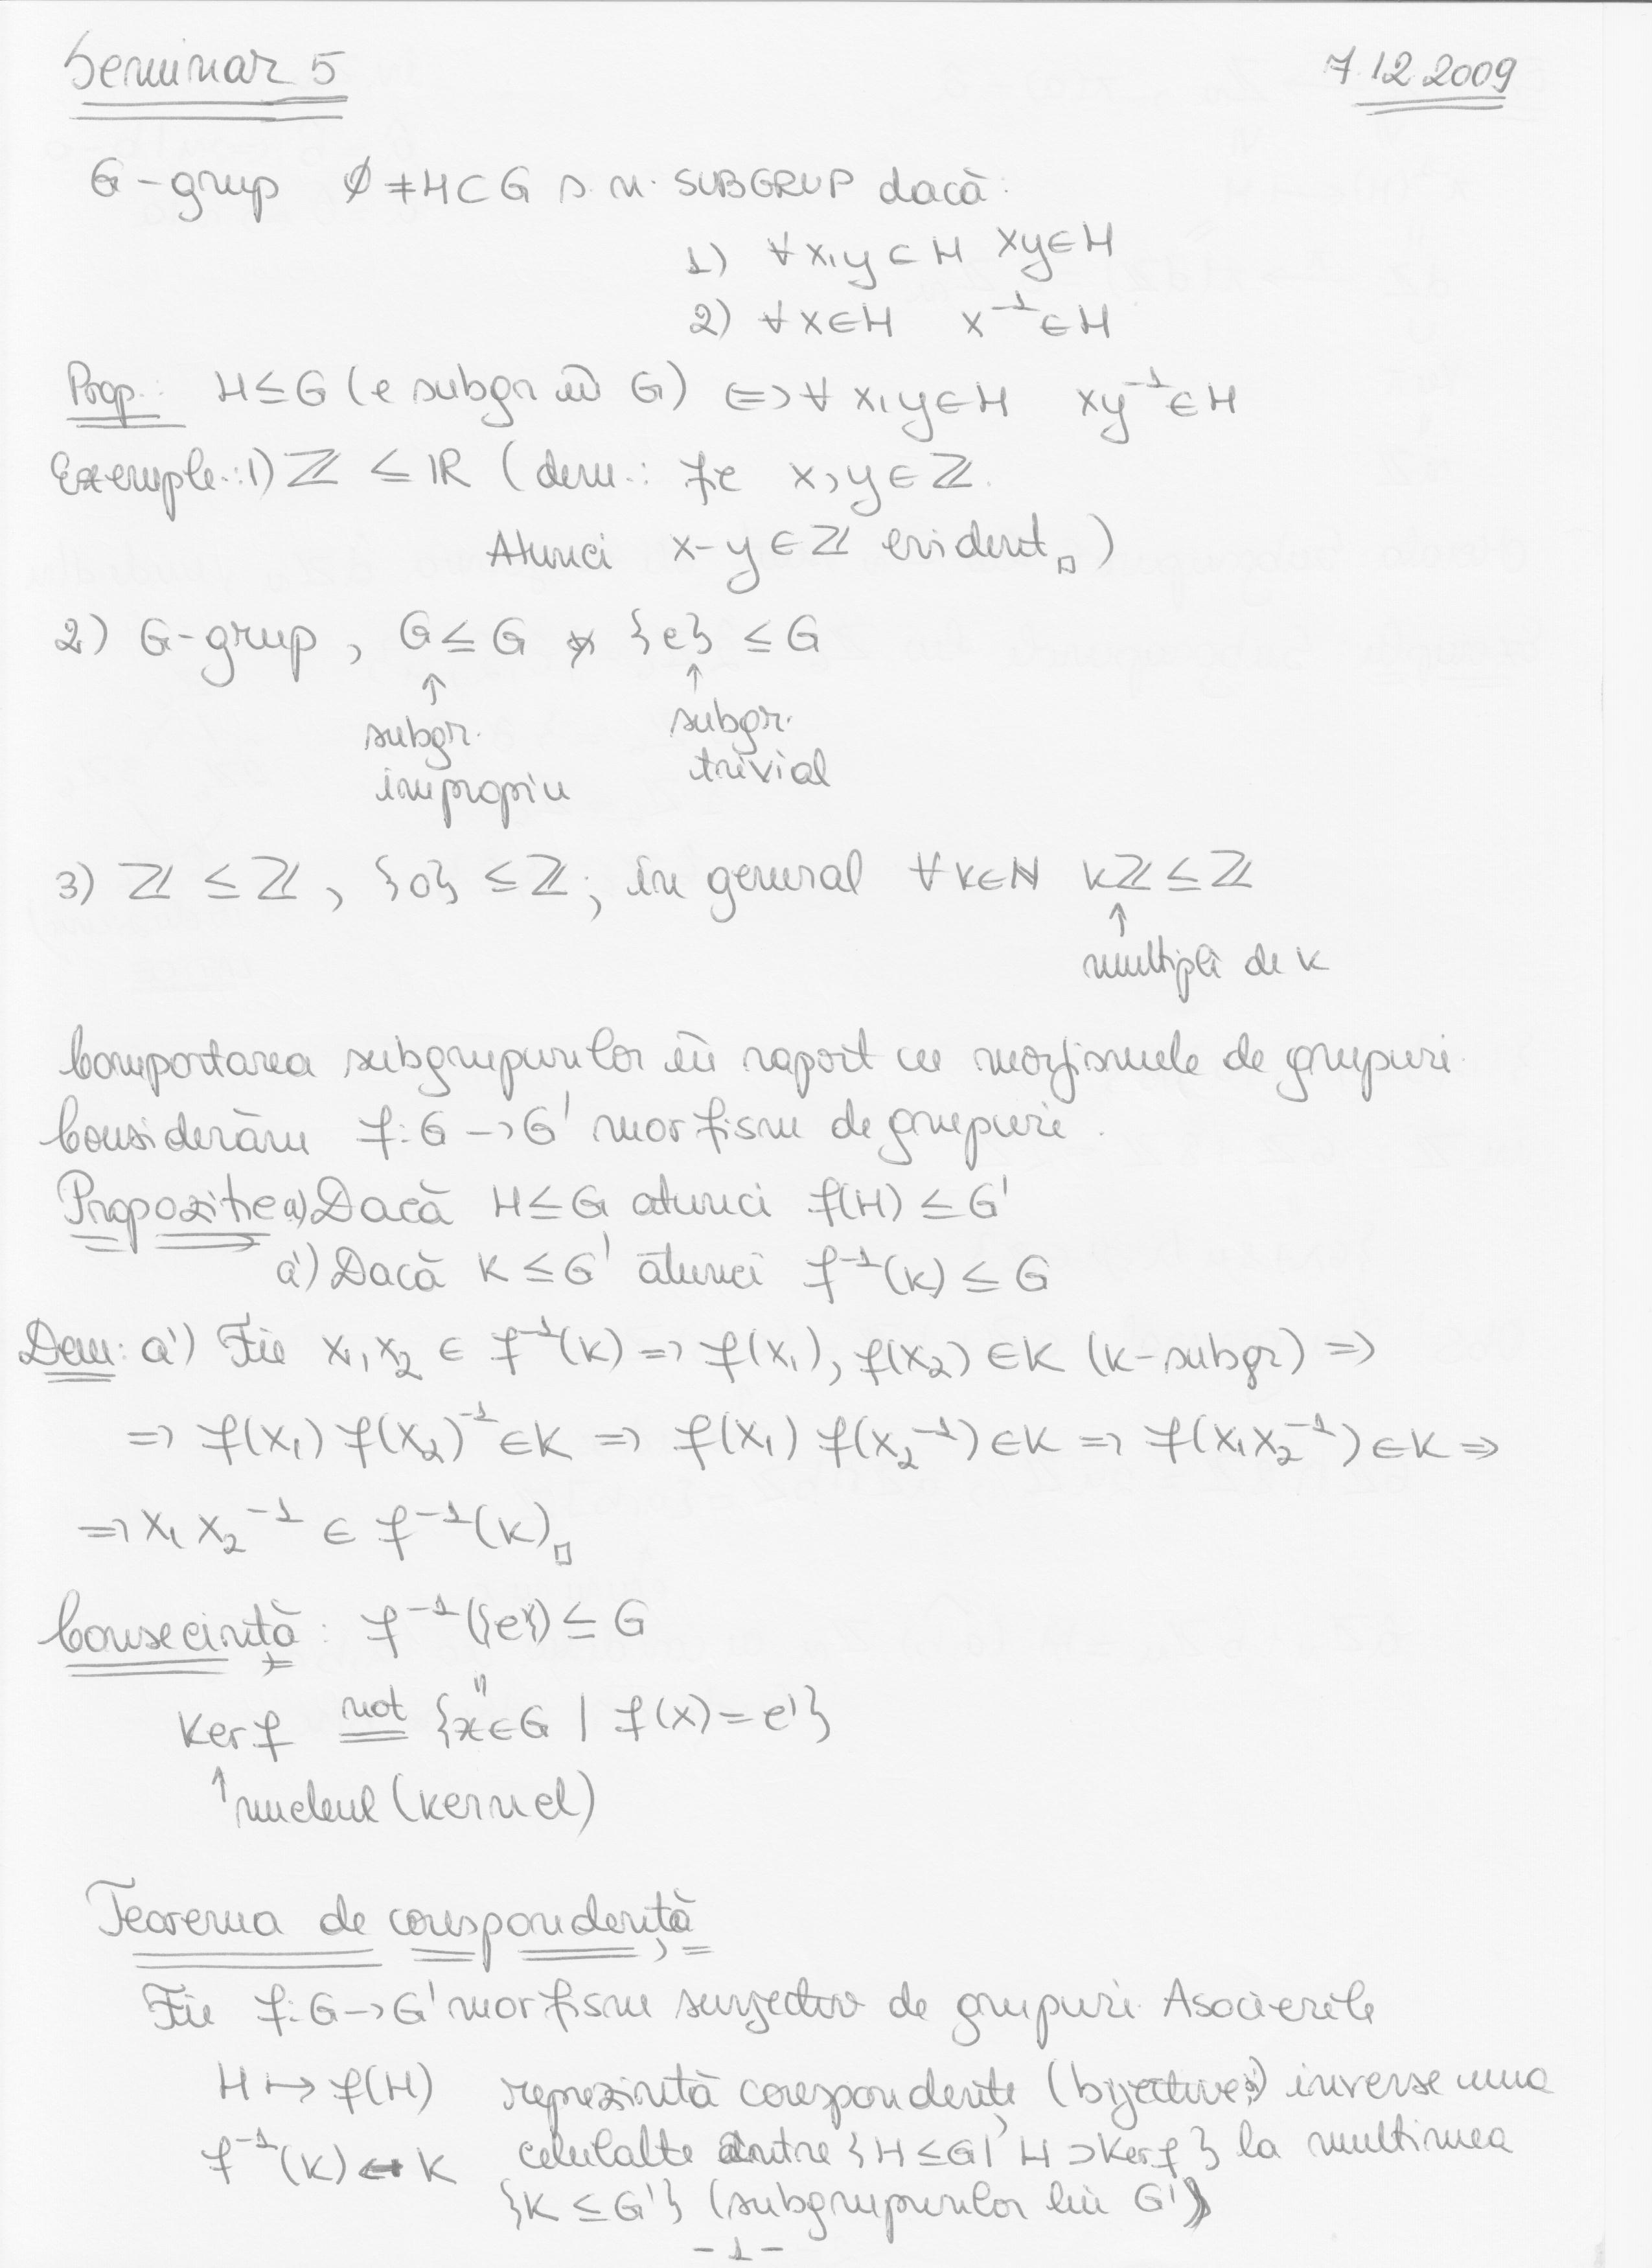 Seminar 5 7.12.2009
G-grup ∅≠H⊂G s.n. SUBGRUP dacă:
1) ∀x,y∈H xy∈H
2) ∀x∈H x⁻¹∈H
Prop.: H≤G (e subgr în G) ⇔ ∀x,y∈H xy⁻¹∈H
Exemple: 1) ℤ ≤ ℝ (dem.: fie x,y∈ℤ.
Atunci x-y∈ℤ evident □)
2) G-grup, G≤G {e} ≤ G
↑ ↑
subgr. subgr.
impropriu trivial
3) ℤ ≤ ℤ, {0} ≤ ℤ; în general ∀k∈ℕ kℤ≤ℤ
↑
multipli de k
Comportarea subgrupurilor în raport cu morfismele de grupuri.
Considerăm f:G→G' morfism de grupuri.
Propoziție a) Dacă H≤G atunci f(H) ≤ G'
a') Dacă K≤G' atunci f⁻¹(K) ≤ G
Dem: a') Fie x₁,x₂ ∈ f⁻¹(K) ⇒ f(x₁), f(x₂) ∈K (K-subgr) ⇒
⇒ f(x₁) f(x₂)⁻¹∈K ⇒ f(x₁) f(x₂⁻¹)∈K ⇒ f(x₁x₂⁻¹)∈K ⇒
⇒ x₁x₂⁻¹ ∈ f⁻¹(K) □
Consecință: f⁻¹({e'}) ≤ G
"
Ker f not {x∈G | f(x)=e'}
↑ nucleul (kernel)
Teorema de corespondență
Fie f:G→G' morfism surjectiv de grupuri. Asocierile
H ↦ f(H) reprezintă corespondențe (bijective) inverse una
f⁻¹(K) ↤ K celeilalte dintre {H≤G | H⊃Ker f} la mulțimea
{K ≤ G'} (subgrupurilor lui G')
-1-